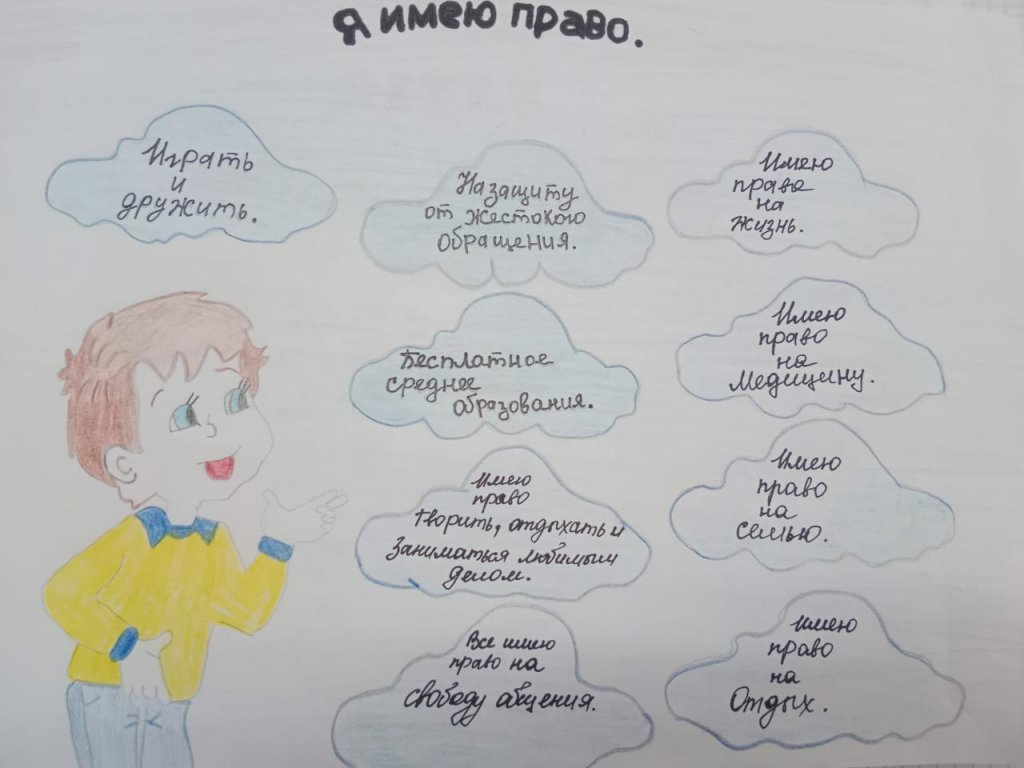 Я имею право.
Играть
и
дружить.
На защиту
от жестокого
обращения.
Имею
право
на
жизнь.
Бесплатное
среднее
образования.
Имею
право
на
Медицину.
Имею
право
Творить, отдыхать и
Заниматься любимым
делом.
Имею
право
на
семью.
Все имею
право на
свободу общения.
Имею
право
на
Отдых.